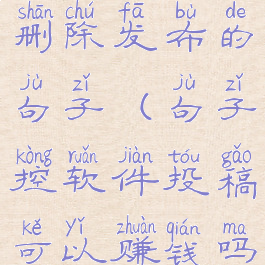 shān chú fā bù de
删除发布的
jù zǐ jù zǐ
句子（句子
kòng ruǎn jiàn tóu gǎo
控软件投稿
kě yǐ zhuàn qián ma
可以赚钱吗